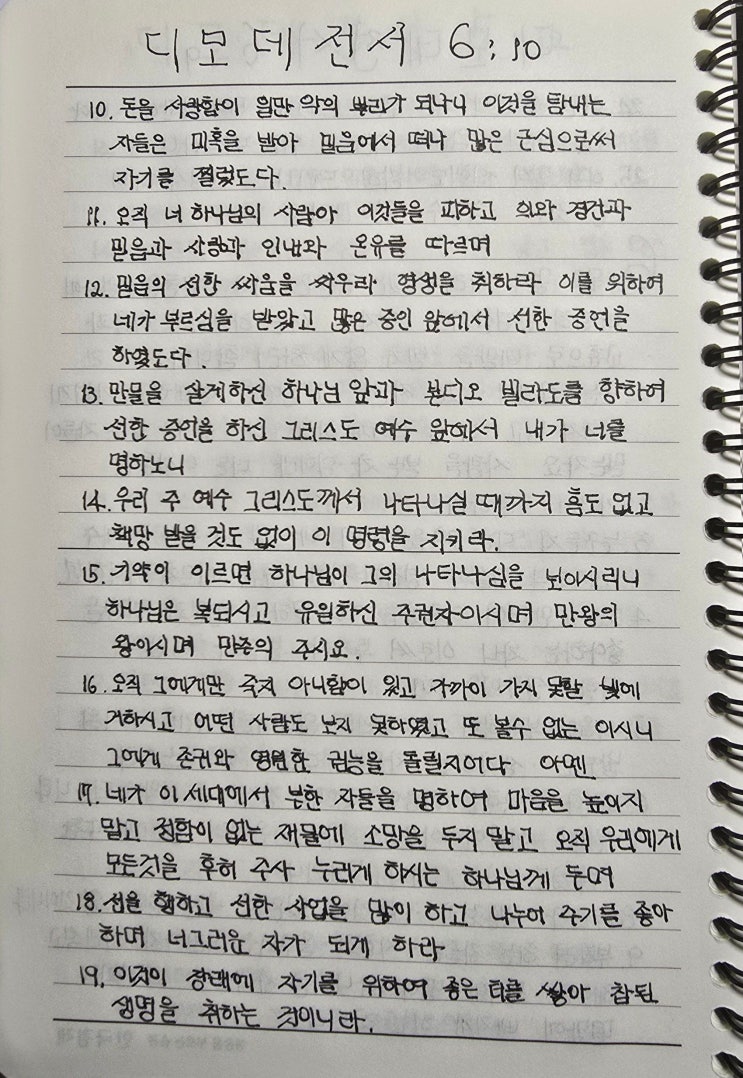 디모데전서 6:10
10. 돈을 사랑함이 일만 악의 뿌리가 되나니 이것을 탐내는
자들은 미혹을 받아 믿음에서 떠나 많은 근심으로써
자기를 찔렀도다.
11. 오직 너 하나님의 사람아 이것들을 피하고 의와 경건과
믿음과 사랑과 인내와 온유를 따르며
12. 믿음의 선한 싸움을 싸우라 영생을 취하라 이를 위하여
네가 부르심을 받았고 많은 증인 앞에서 선한 증언을
하였도다.
13. 만물을 살게하신 하나님 앞과 본디오 빌라도를 향하여
선한 증언을 하신 그리스도 예수 앞에서 내가 너를
명하노니
14. 우리 주 예수 그리스도께서 나타나실 때까지 흠도 없고
책망 받을 것도 없이 이 명령을 지키라.
15. 기약이 이르면 하나님이 그의 나타나심을 보이시리니
하나님은 복되시고 유일하신 주권자이시며 만왕의
왕이시며 만주의 주시오.
16. 오직 그에게만 죽지 아니함이 있고 가까이 가지 못할 빛에
거하시고 어떤 사람도 보지 못하였고 또 볼수 없는 이시니
그에게 존귀와 영원한 권능을 돌릴지어다 아멘
17. 네가 이 세대에서 부한 자들을 명하여 마음을 높이지
말고 정함이 없는 재물에 소망을 두지 말고 오직 우리에게
모든것을 후히 주사 누리게 하시는 하나님께 두며
18. 선을 행하고 선한 사업을 많이 하고 나누어 주기를 좋아
하며 너그러운 자가 되게 하라
19. 이것이 장래에 자기를 위하여 좋은 터를 쌓아 참된
생명을 취하는 것이니라.